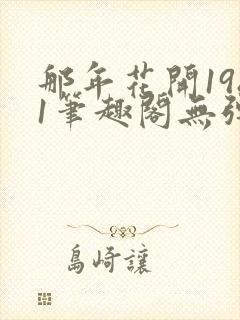 那年花開19
1筆趣閣無
島崎讓